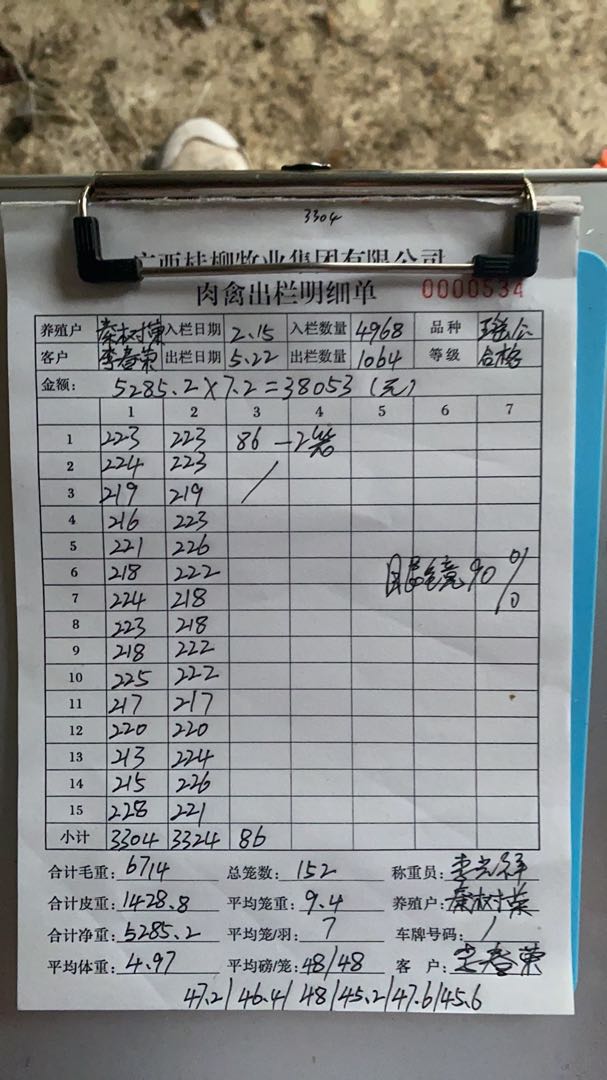 3304
广西桂柳牧业集团有限公司
肉禽出栏明细单 0000534
养殖户 秦树荣 入栏日期 2.15 入栏数量 4968 品种 瑶公
客户 李春荣 出栏日期 5.22 出栏数量 1064 等级 合格
金额: 5285.2×7.2=38053(元)
1 2 3 4 5 6 7
1 223 223 86 — 2笼
2 224 223
3 219 219 /
4 216 223
5 221 226
6 218 222 眼镜90%
7 224 218
8 223 218
9 218 222
10 225 222
11 217 217
12 220 220
13 213 224
14 215 226
15 228 221
小计 3304 3324 86
合计毛重: 6714 总笼数: 152 称重员:
合计皮重: 1428.8 平均笼重: 9.4 养殖户: 秦树荣
合计净重: 5285.2 平均笼/羽: 7 车牌号码: /
平均体重: 4.97 平均磅/笼: 48/48 客 户: 李春荣
47.2/46.4/48/45.2/47.6/45.6